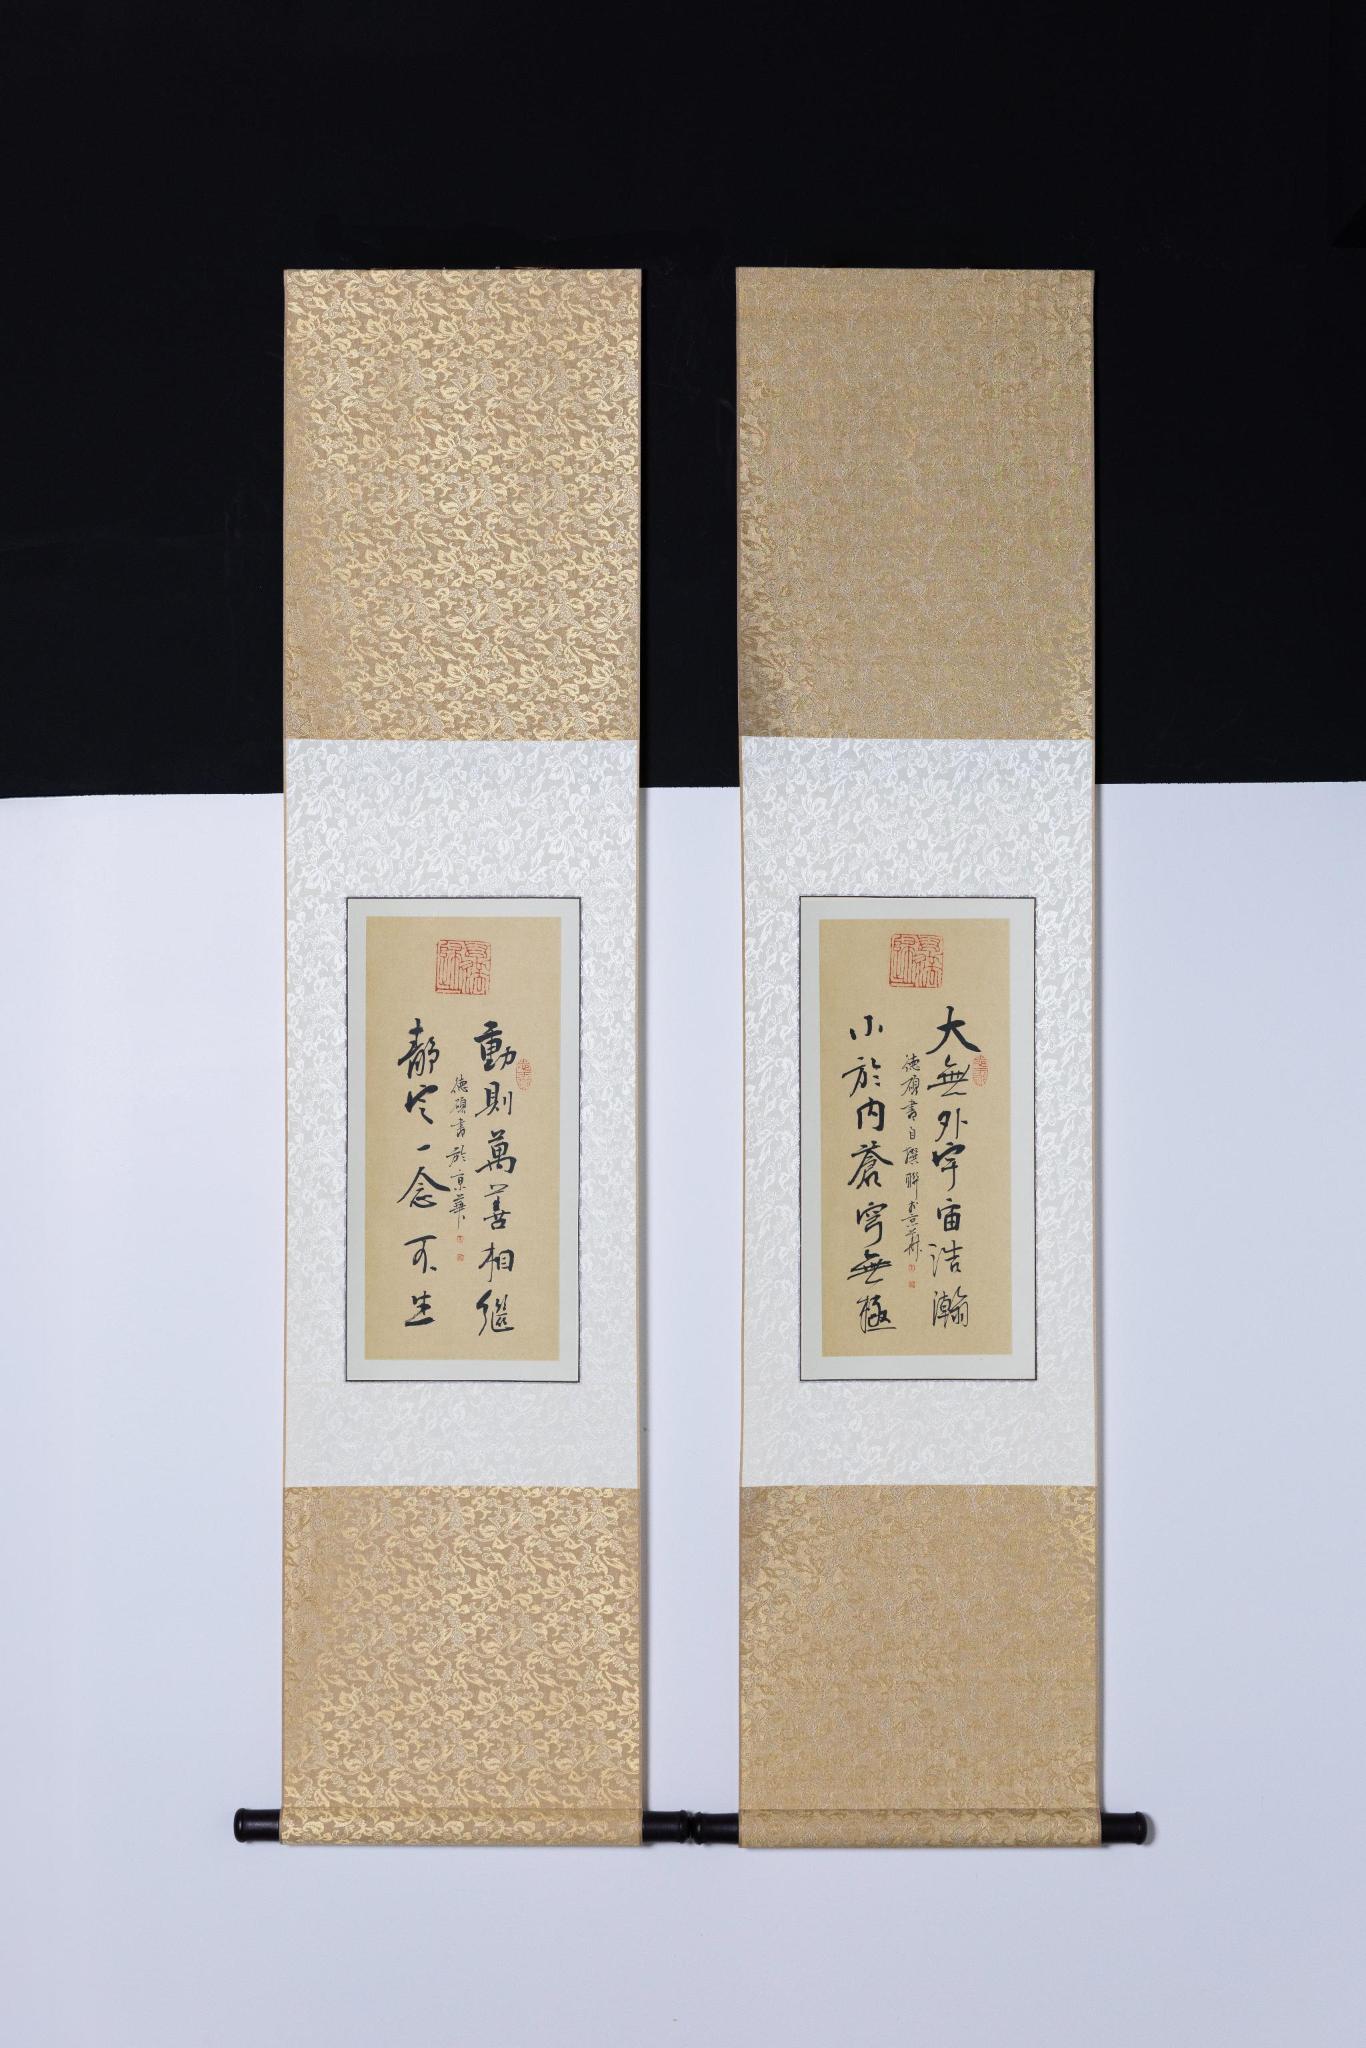 大無外宇宙浩瀚
小於内蒼穹無極
德碩書自撰聯於京華
動則萬善相繼
靜定一念不生
德碩書於京華